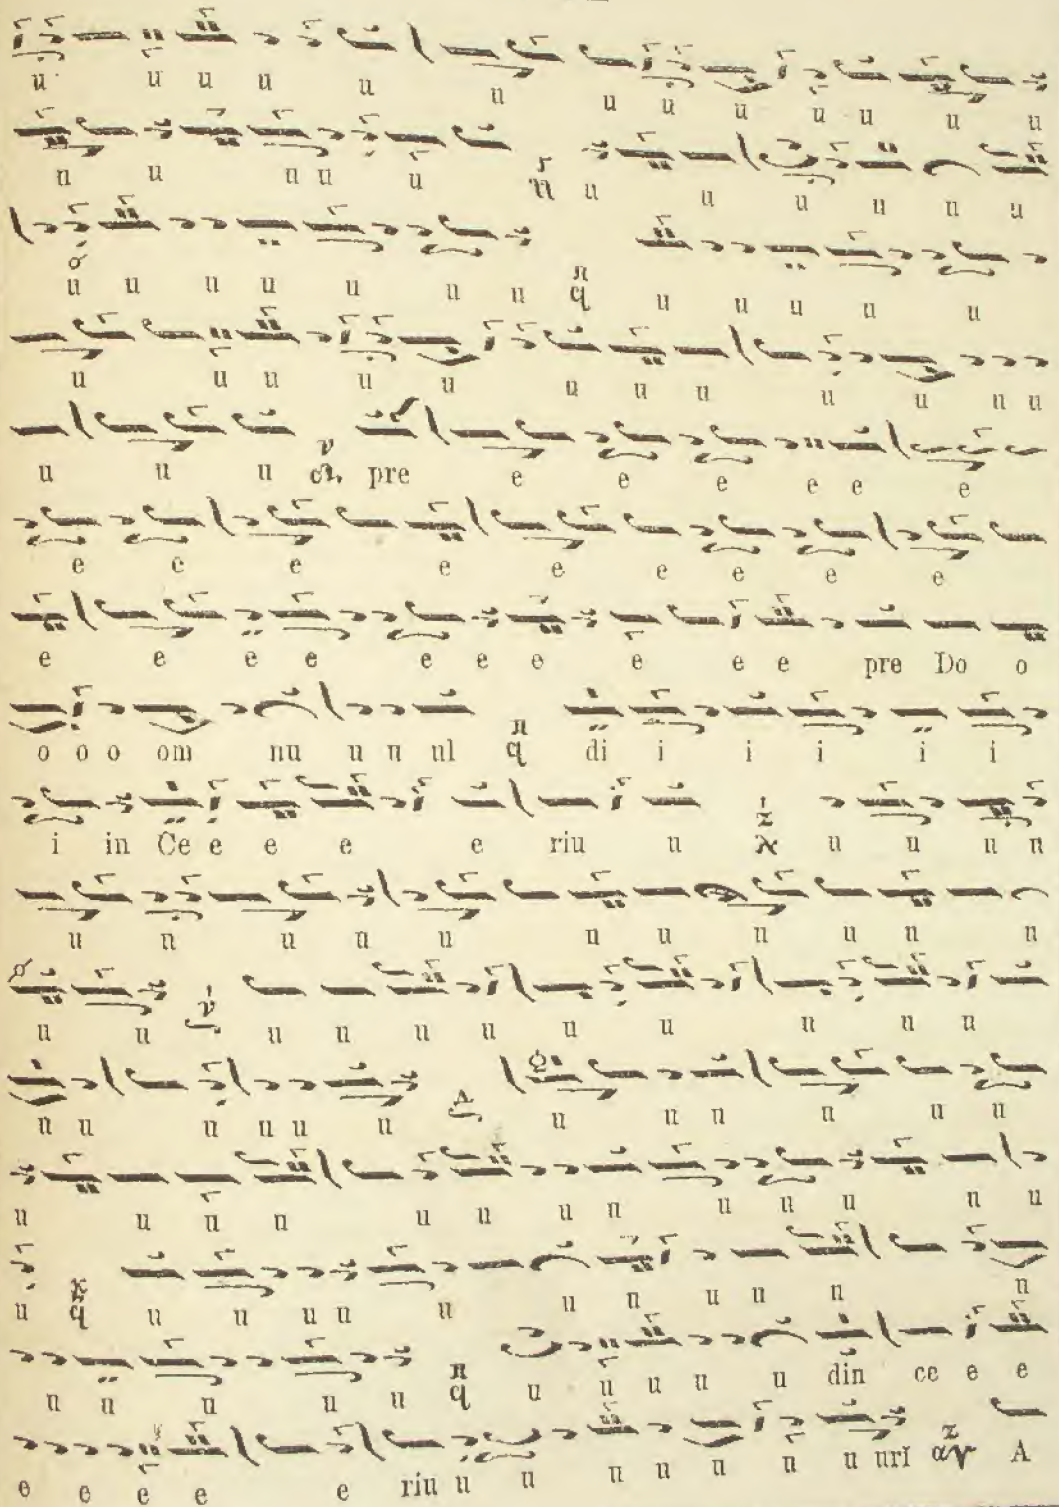 u u u u u u u u u u u u u
u u u u u u u u u u u
u u u u u u u π q u u u u u
u u u u u u u u u u u u
u u u ν pre e e e e e e
e e e e e e e e e
e e e e e e e e e e pre Do o
o o o om nu u u ul π q di i i i i i
i in Ce e e e e riu u u u u u
u u u u u u u u u u u
u u ν u u u u u u u u u
u u u u u u u u u u u u
u u u u u u u u u u u u u
u q u u u u u u u u u u u
u u u u u π q u u u u u din ce e e
e e e e e riu u u u u u u u url A